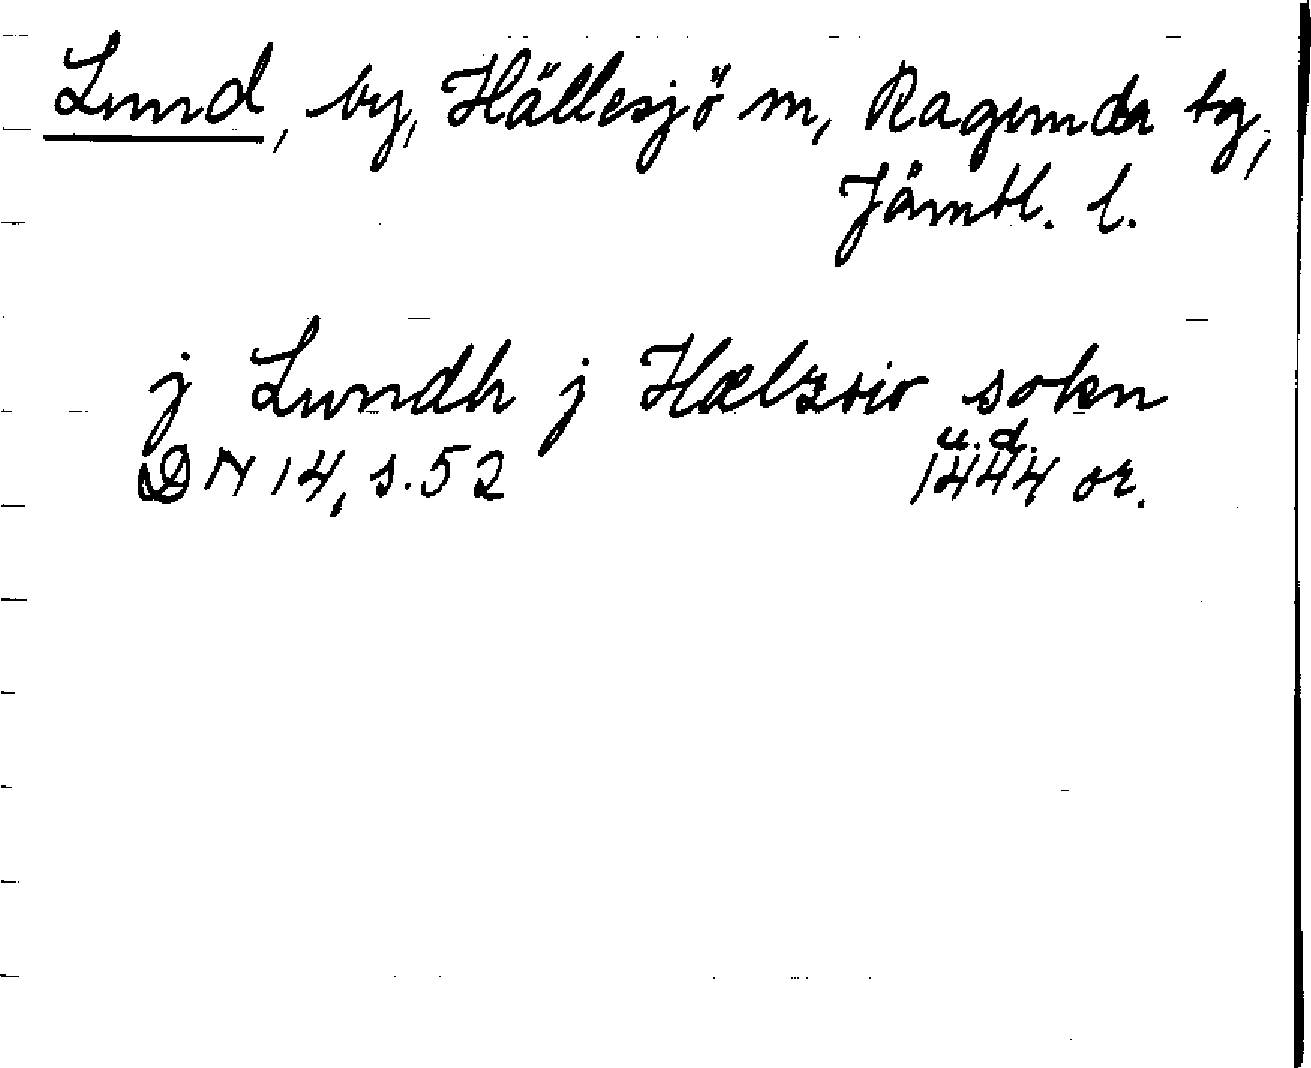 Lund, by, Hällesjö sn, Ragunda tg,
Jämtl. l.
j Lundh j Hælzsio sokn
u.d.
DN 14, s. 52 1444 or.